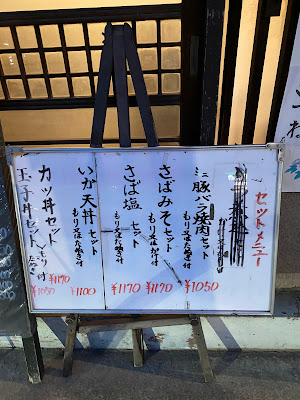 セットメニュー
ミニ豚バラ焼肉セット
もり又はたぬき付
¥1050
さばみそセット
もり又はたぬき付
¥1170
さば塩セット
もり又はたぬき付
¥1170
いか天丼セット
もり又はたぬき付
¥1100
カツ丼セット
もり
¥1170
玉子丼セット
¥1050